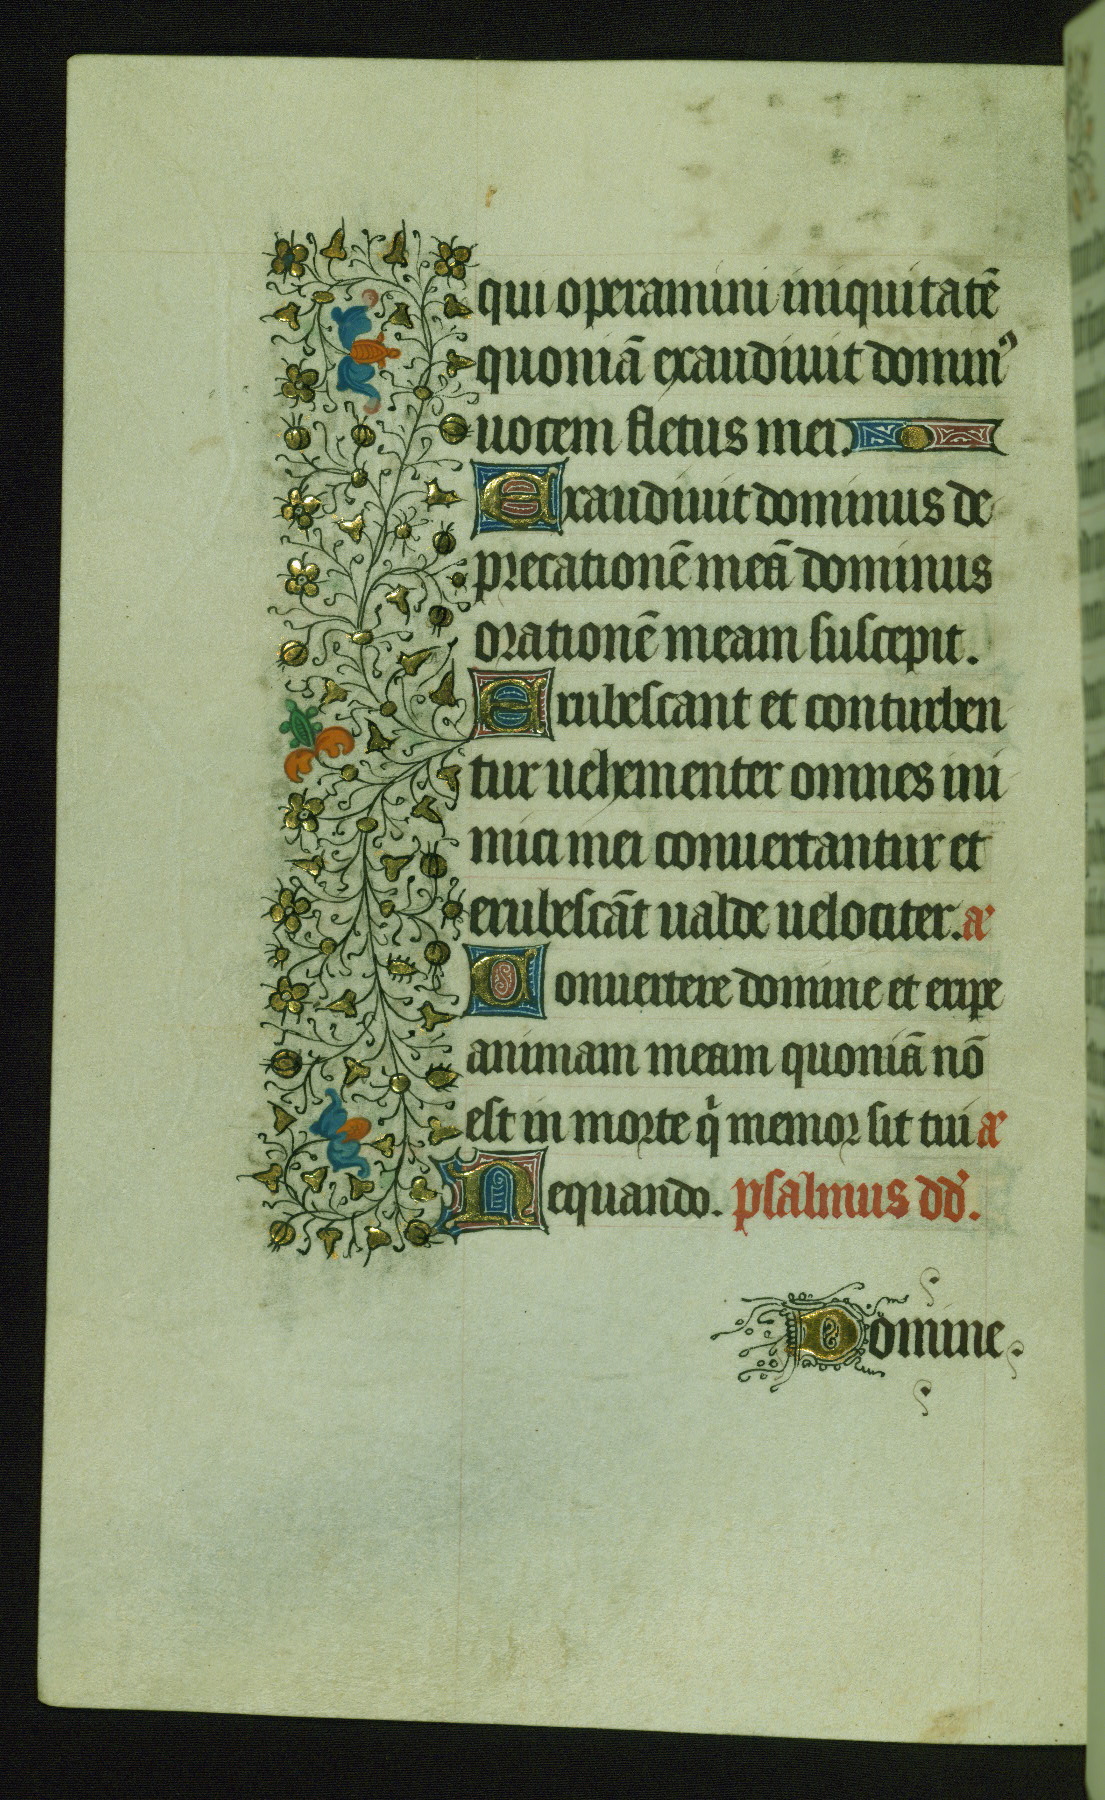 qui operamini iniquitatē
quoniā exaudiuit domin⁹
uocem fletus mei.
Exaudiuit dominus de
precationē meā dominus
orationē meam suscepit.
Erubescant et conturben
tur uehementer omnes ini
mici mei conuertantur et
erubescāt ualde uelociter. a᷑
Conuertere domine et eripe
animam meam quoniā nō
est in morte q̇ memor sit tui a᷑
Nequando. psalmus dd̄.
Domine.